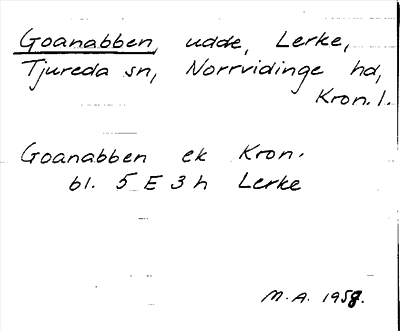 Goanabben, udde, Lerke,
Tjureda sn, Norrvidinge hd,
Kron. l.
Goanabben ek Kron.
bl. 5 E 3 h Lerke
M. A. 1958.